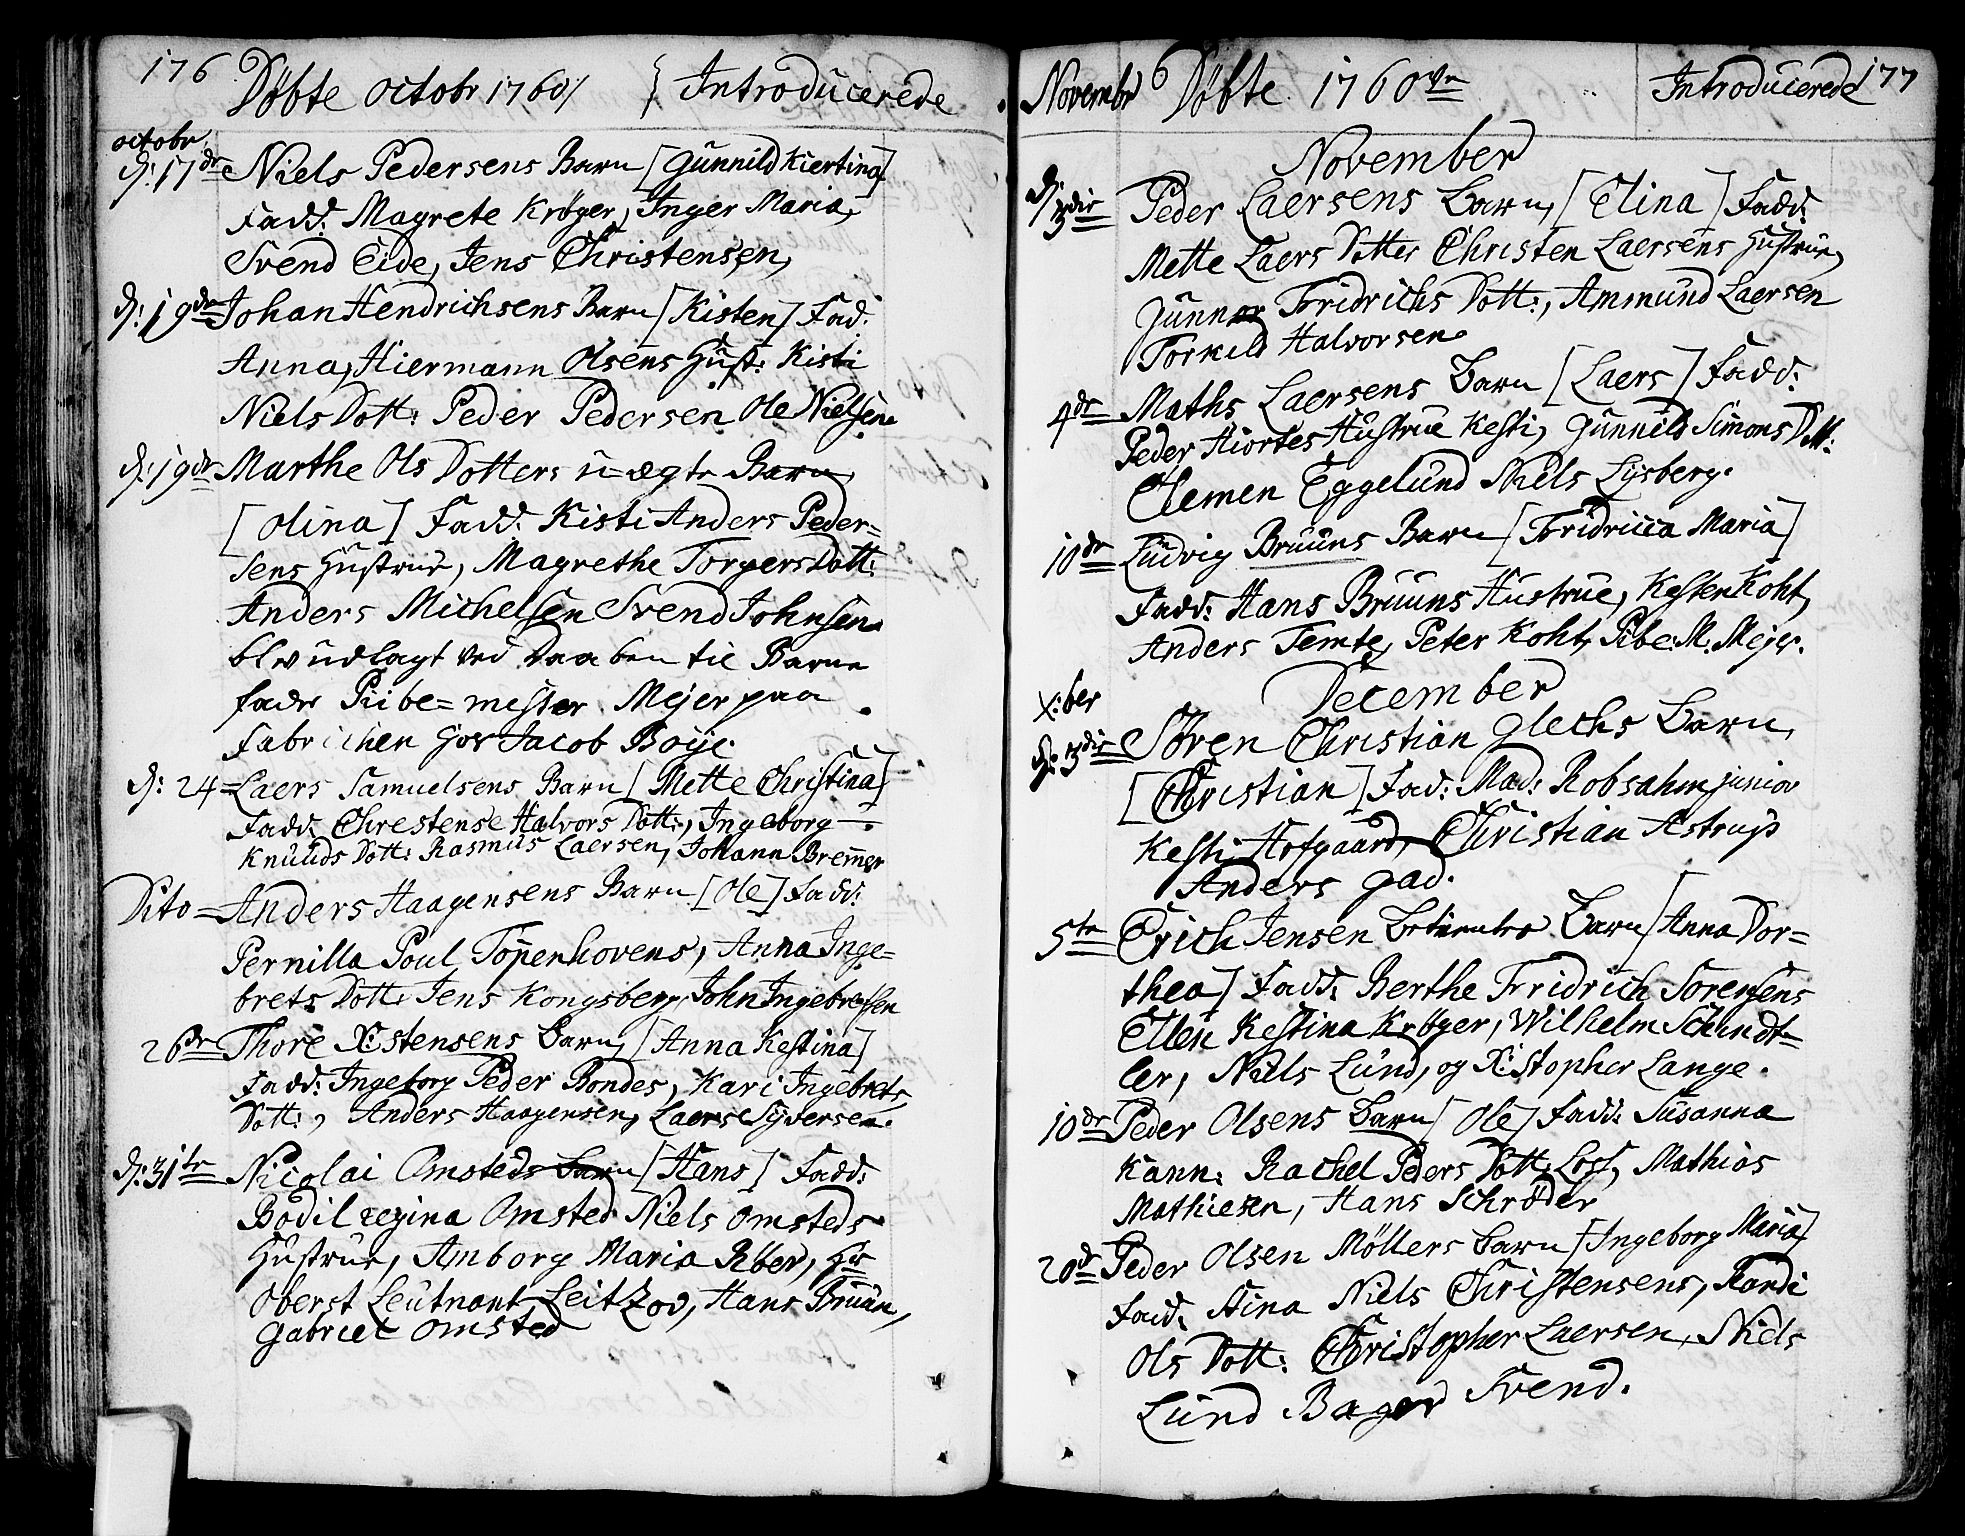 176 Döbte octobr 1760 // Introducerede
octobr
d: 17de Niels Pedersens Barn [Gunnild Kiertina]
Fadd: Magrete Krøger, Inger Maria,
Svend Eide, Jens Christensen,
d: 19de Johan Hendrichsens Barn [Kisten] Fad:
Anna, Hiermann Olsens Hust: Kisti
Niels Dott: Peder Pedersen Ole Nielsen.
d: 19de Marthe Ols Dotters uægte Barn
[Olina] Fadd: Kisti Anders Peder=
sens Hustrue, Magrethe Torgers Dott:
Anders Michelsen Svend Johnsen.
blev udlagt ved Daaben til Barne
fader Piibe=mester Mejer paa
Fabrichen hos Jacob Boye.
d: 24= Laers Samuelsens Barn [Mette Christina]
Fadd: Chrestense Halvors Dott:, Ingeborg
Knuuds Dott: Rasmus Laersen, Johann Bremer
Dito= Anders Haagensens Barn [Ole] Fadd:
Pernilla Poul Topenhovens, Anna Inge=
brets Dott: Jens Kongsberg, John Ingebretsen
26de Thore Xstensens Barn, [Anna Kestina]
Fadd: Ingeborg Peder Bondes, Kari Ingebrets
Dott:, Anders Haagensen, Laers Syversen.
d: 31te Nicolai Omsteds Barn [Hans] Fadd:
Bodil regina Omsted Niels Omsteds
Hustrue, Amborg Maria Riber, Hr
Oberst Leutnant Leitzov, Hans Bruun,
Gabriel Omsted
Novembr Döbte 1760ve Introducerede 177
November
d: 3die Peder Laersens Barn, [Elina] Fadd:
Mette Laers Dotter Christen Laersens Hustrue,
Gunnor Fridrichs Dott:, Ammund Laersen
Torkild Halvorsen.
4de Maths Laersens Barn [Laers] Fadd:
Peder Hiortes Hustrue Kesti, Gunnild Simons Dtt:
Clemen Eggelund Niels Lysberg.
10de Ludvig Bruuns Barn [Fridricca Maria]
Fadd: Hans Bruuns Hustrue, Kesten Koht,
Anders Temte, Peter Koht, Pibe: M: Mejer.
December
X:ber
d: 3die Sören Christian Glechs Barn,
[Christian] Fad: Mad: Robsahm junior
Kesti Hofgaard, Christian Astrup
Anders Gad.
5te Erich Jensen Barn [Anna Dor=
thea] Fadd: Berthe Fridrich Sorensens
Ellen Kestina Krøger, Wilhelm Schindt=
ler, Niels Lund, og Xstopher Lange.
10de Peder Olsens Barn [Ole] Fadd: Susanna
Kann: Rachel Peders Dott: Lost, Mathias
Mathiesen, Hans Schrøder
20de Peder Olsen Möllers Barn [Ingeborg Maria]
Fadd: Stina Niels Christensens, Randi
Ols Dott: Christopher Laersen, Niels
Lund Bager Svend.